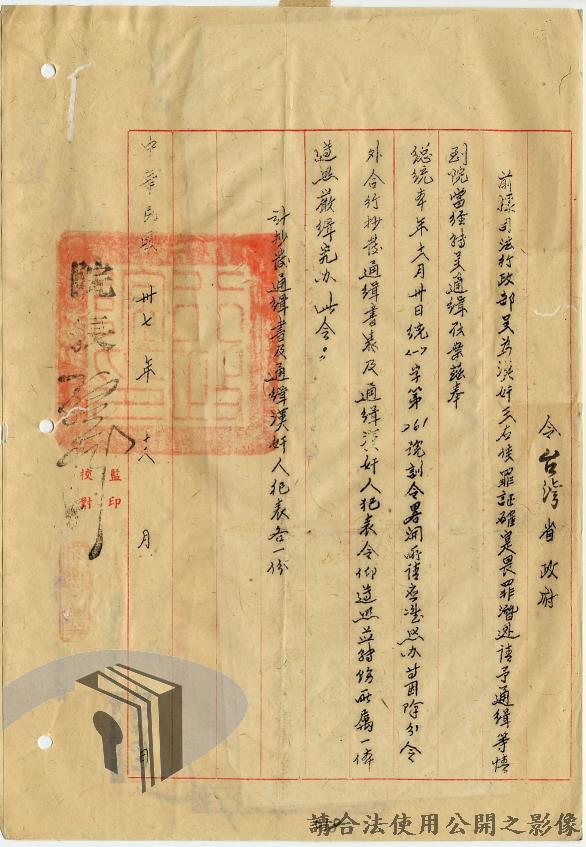 令台灣省政府
前據司法行政部呈為漢奸三名俟罪証確實畏罪潛逃請予通緝等情
到院當經轉呈通緝在案茲奉
總統本年六月卅日統㈠字第261號訓令畧開所請應准照办等因除分令
外合行抄發通緝書表及通緝漢奸人犯表令仰遵照並轉飭所屬一体
遵照嚴緝究办此令。
計抄發通緝書及通緝漢奸人犯表各一份
中華民國卅七年 月
院長
監印
校對
請合法使用公開之影像